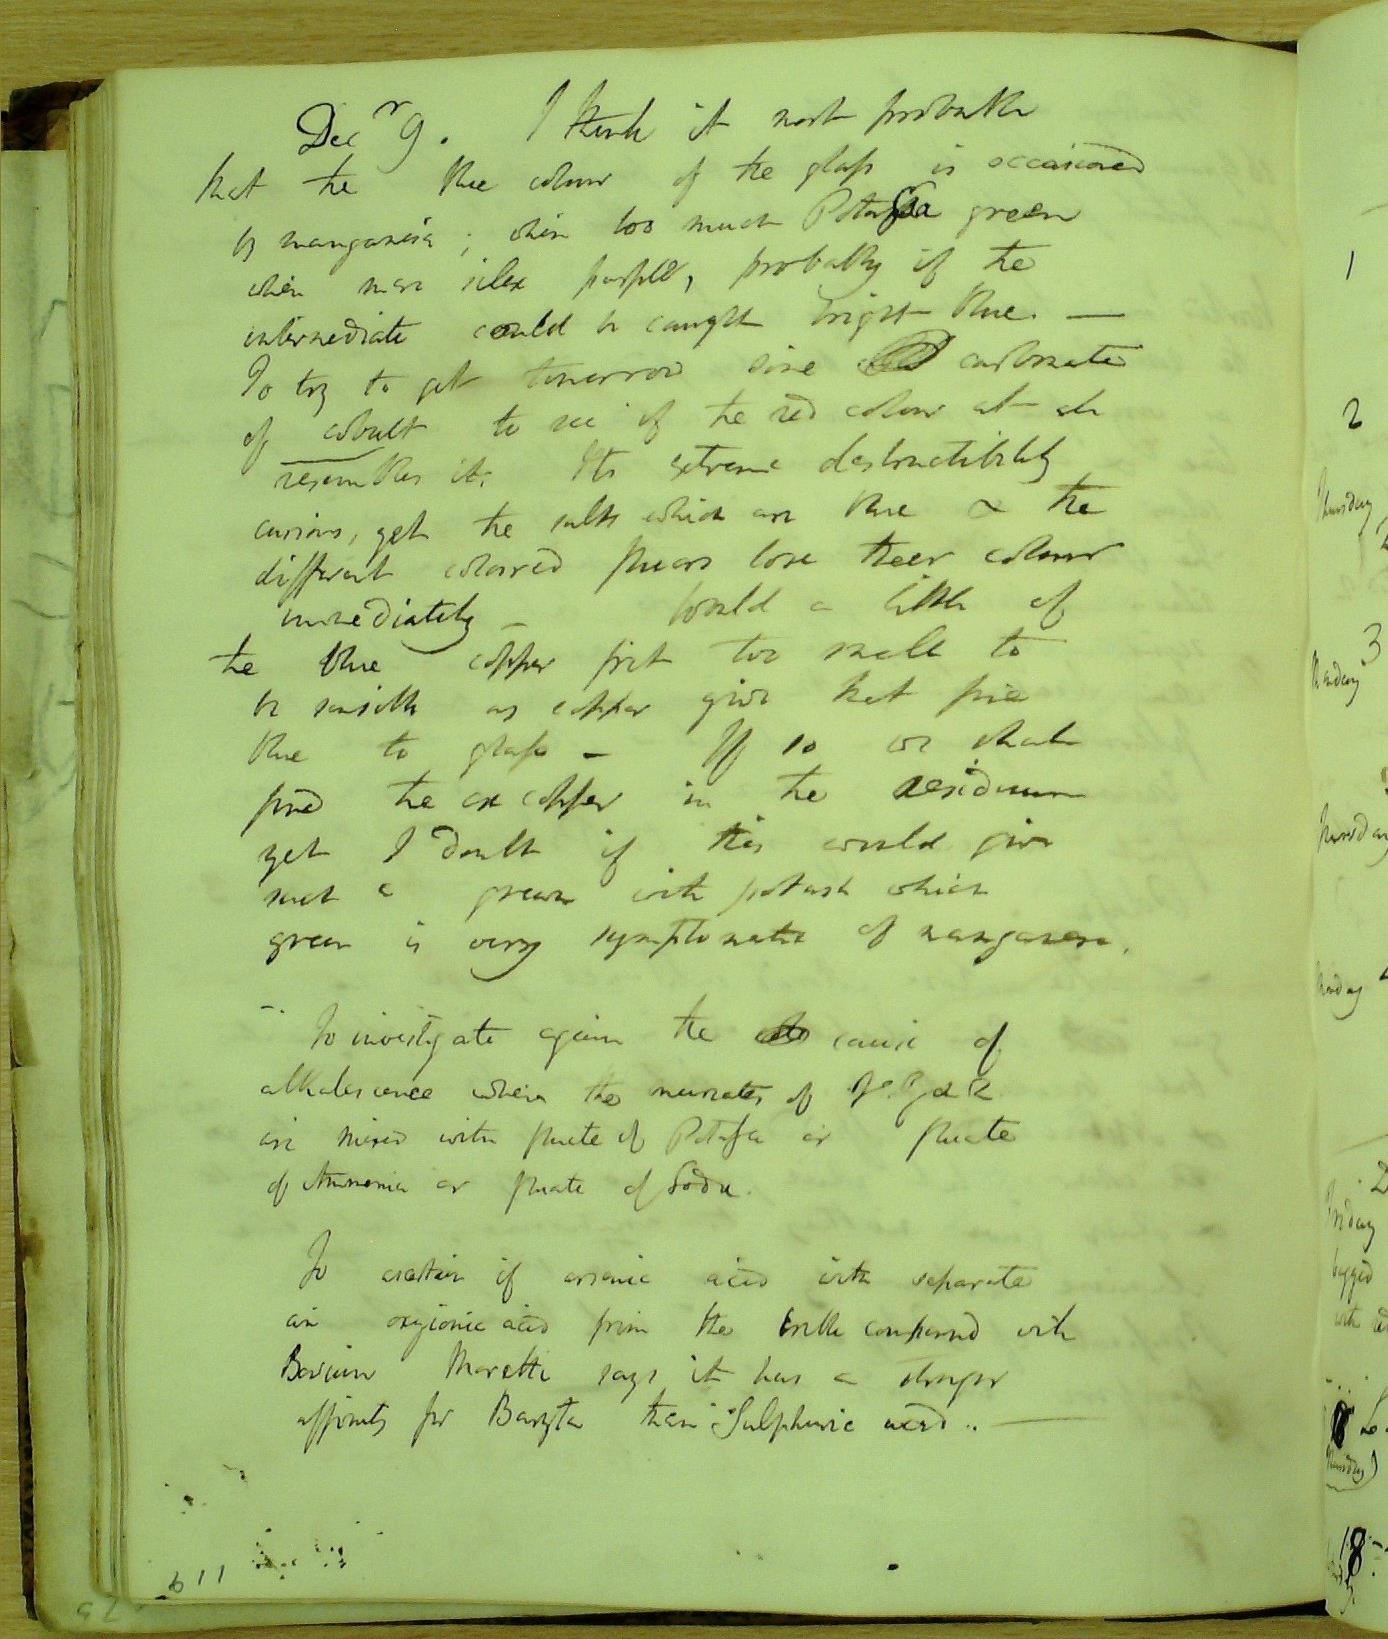 Decr 9. I think it most probable
that the blue colour of the glass is occasioned
by manganese; when too much Potassa green
when more silex purple, probably if the
intermediate could be caught bright blue. —
To try to get tomorrow some carbonate
of cobalt to see if the red colour at all
resembles it. Its extreme destructibility
curious, yet the salts which are blue & the
different coloured fluors lose their colour
immediately — Would a little of
the blue copper frit too small to
be sensible as copper give that fine
blue to glass — If so we shall
find the ox copper in the residuum
yet I doubt if this would give
such a green with potash which
green is very symptomatic of manganese.
To investigate again the cause of
alkalescence when the muriates of
are mixed with fluate of Potassa or fluate
of Ammonia or fluate of Soda.
To ascertain if arsenic acid will separate
an oxyionic acid from the triple compound with
Barium Moretti says it has a stronger
affinity for Baryta than Sulphuric acid.. —
1
2
Thursday
3
Friday
18
119